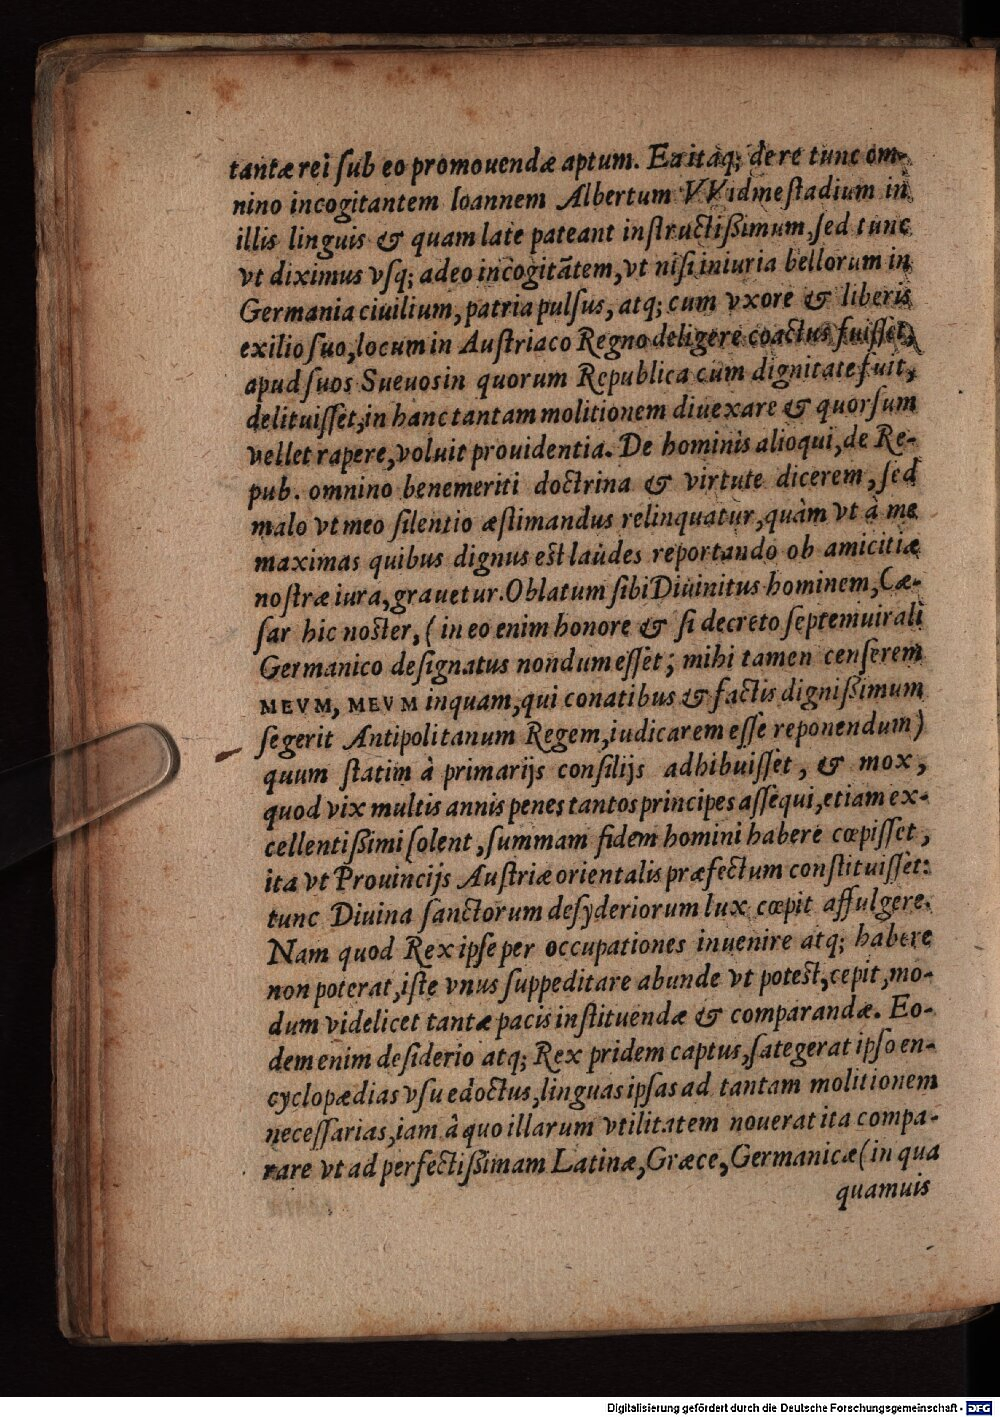 tantæ rei ſub eo promouendæ aptum. Ea itaq; de re tunc om-
nino incogitantem Ioannem Albertum VVidmeſtadium in
illis linguis & quam late pateant inſtructiſſimum, ſed tunc
vt diximus vſq; adeo incogitātem, vt niſi iniuria bellorum in
Germania ciuilium, patria pulſus, atq; cum vxore & liberis
exilio ſuo, locum in Auſtriaco Regno deligere coactus fuiſſet,
apud ſuos Sueuos in quorum Republica cum dignitate fuit,
delituiſſet, in hanc tantam molitionem diuexare & quorſum
vellet rapere, voluit prouidentia. De hominis alioqui, de Re-
pub. omnino benemeriti doctrina & virtute dicerem, ſed
malo vt meo ſilentio æſtimandus relinquatur, quàm vt à me
maximas quibus dignus est laudes reportando ob amicitiæ
noſtræ iura, grauetur. Oblatum ſibi Diuinitus hominem, Cæ-
ſar hic noster, (in eo enim honore & ſi decreto ſeptemuirali
Germanico deſignatus nondum eſſet; mihi tamen cenſerem
MEVM, MEVM inquam, qui conatibus & factis digniſſimum
ſegerit Antipolitanum Regem, iudicarem eſſe reponendum)
quum ſtatim à primarijs conſilijs adhibuiſſet, & mox,
quod vix multis annis penes tantos principes aſſequi, etiam ex-
cellentiſſimi ſolent, ſummam fidem homini habere cœpiſſet,
ita vt Prouincijs Auſtriæ orientalis præfectum conſtituiſſet:
tunc Diuina ſanctorum deſyderiorum lux cœpit affulgere.
Nam quod Rex ipſe per occupationes inuenire atq; habere
non poterat, iſte vnus ſuppeditare abunde vt potest, cepit, mo-
dum videlicet tantæ pacis inſtituendæ & comparandæ. Eo-
dem enim deſiderio atq; Rex pridem captus, ſategerat ipſo en-
cyclopædias vſu edoctus, linguas ipſas ad tantam molitionem
neceſſarias, iam à quo illarum vtilitatem nouerat ita compa-
rare vt ad perfectiſſimam Latinæ, Græce, Germanicæ (in qua
quamuis
Digitalisierung gefördert durch die Deutsche Forschungsgemeinschaft - DFG